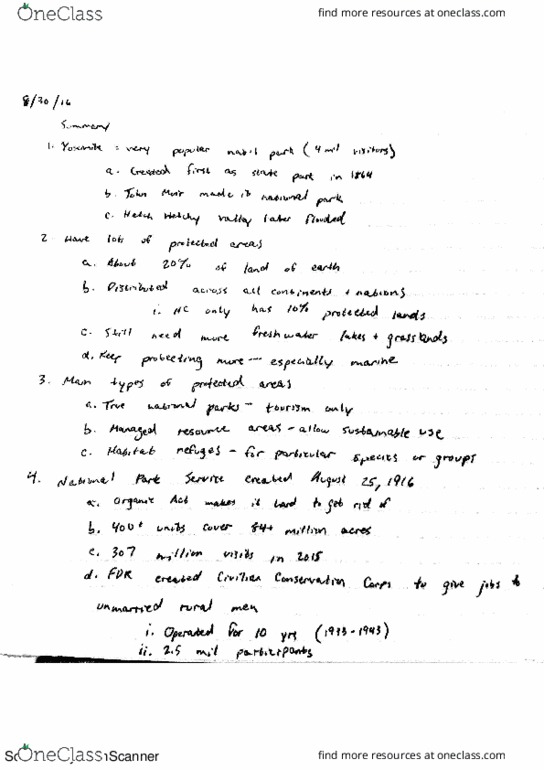 OneClass find more resources at oneclass.com
8/30/16
Summary
1. Yosemite = very popular nat'l park (4 mil visitors)
a. Created first as state park in 1864
b. John Muir made it national park
c. Hetch Hetchy valley later flooded
2. Have lots of protected areas
a. About 20% of land of earth
b. Distributed across all continents + nations
i. NC only has 10% protected lands
c. Still need more freshwater lakes + grasslands
d. Keep protecting more -- especially marine
3. Main types of protected areas
a. True national parks - tourism only
b. Managed resource areas - allow sustainable use
c. Habitat refuges - for particular species or groups
4. National Park Service created August 25, 1916
a. Organic Act makes it hard to get rid of
b. 400+ units cover 84+ million acres
c. 307 million visits in 2015
d. FDR created Civilian Conservation Corps to give jobs to
unmarried rural men
i. Operated for 10 yrs (1933-1943)
ii. 2.5 mil participants
OneClass Scanner find more resources at oneclass.com